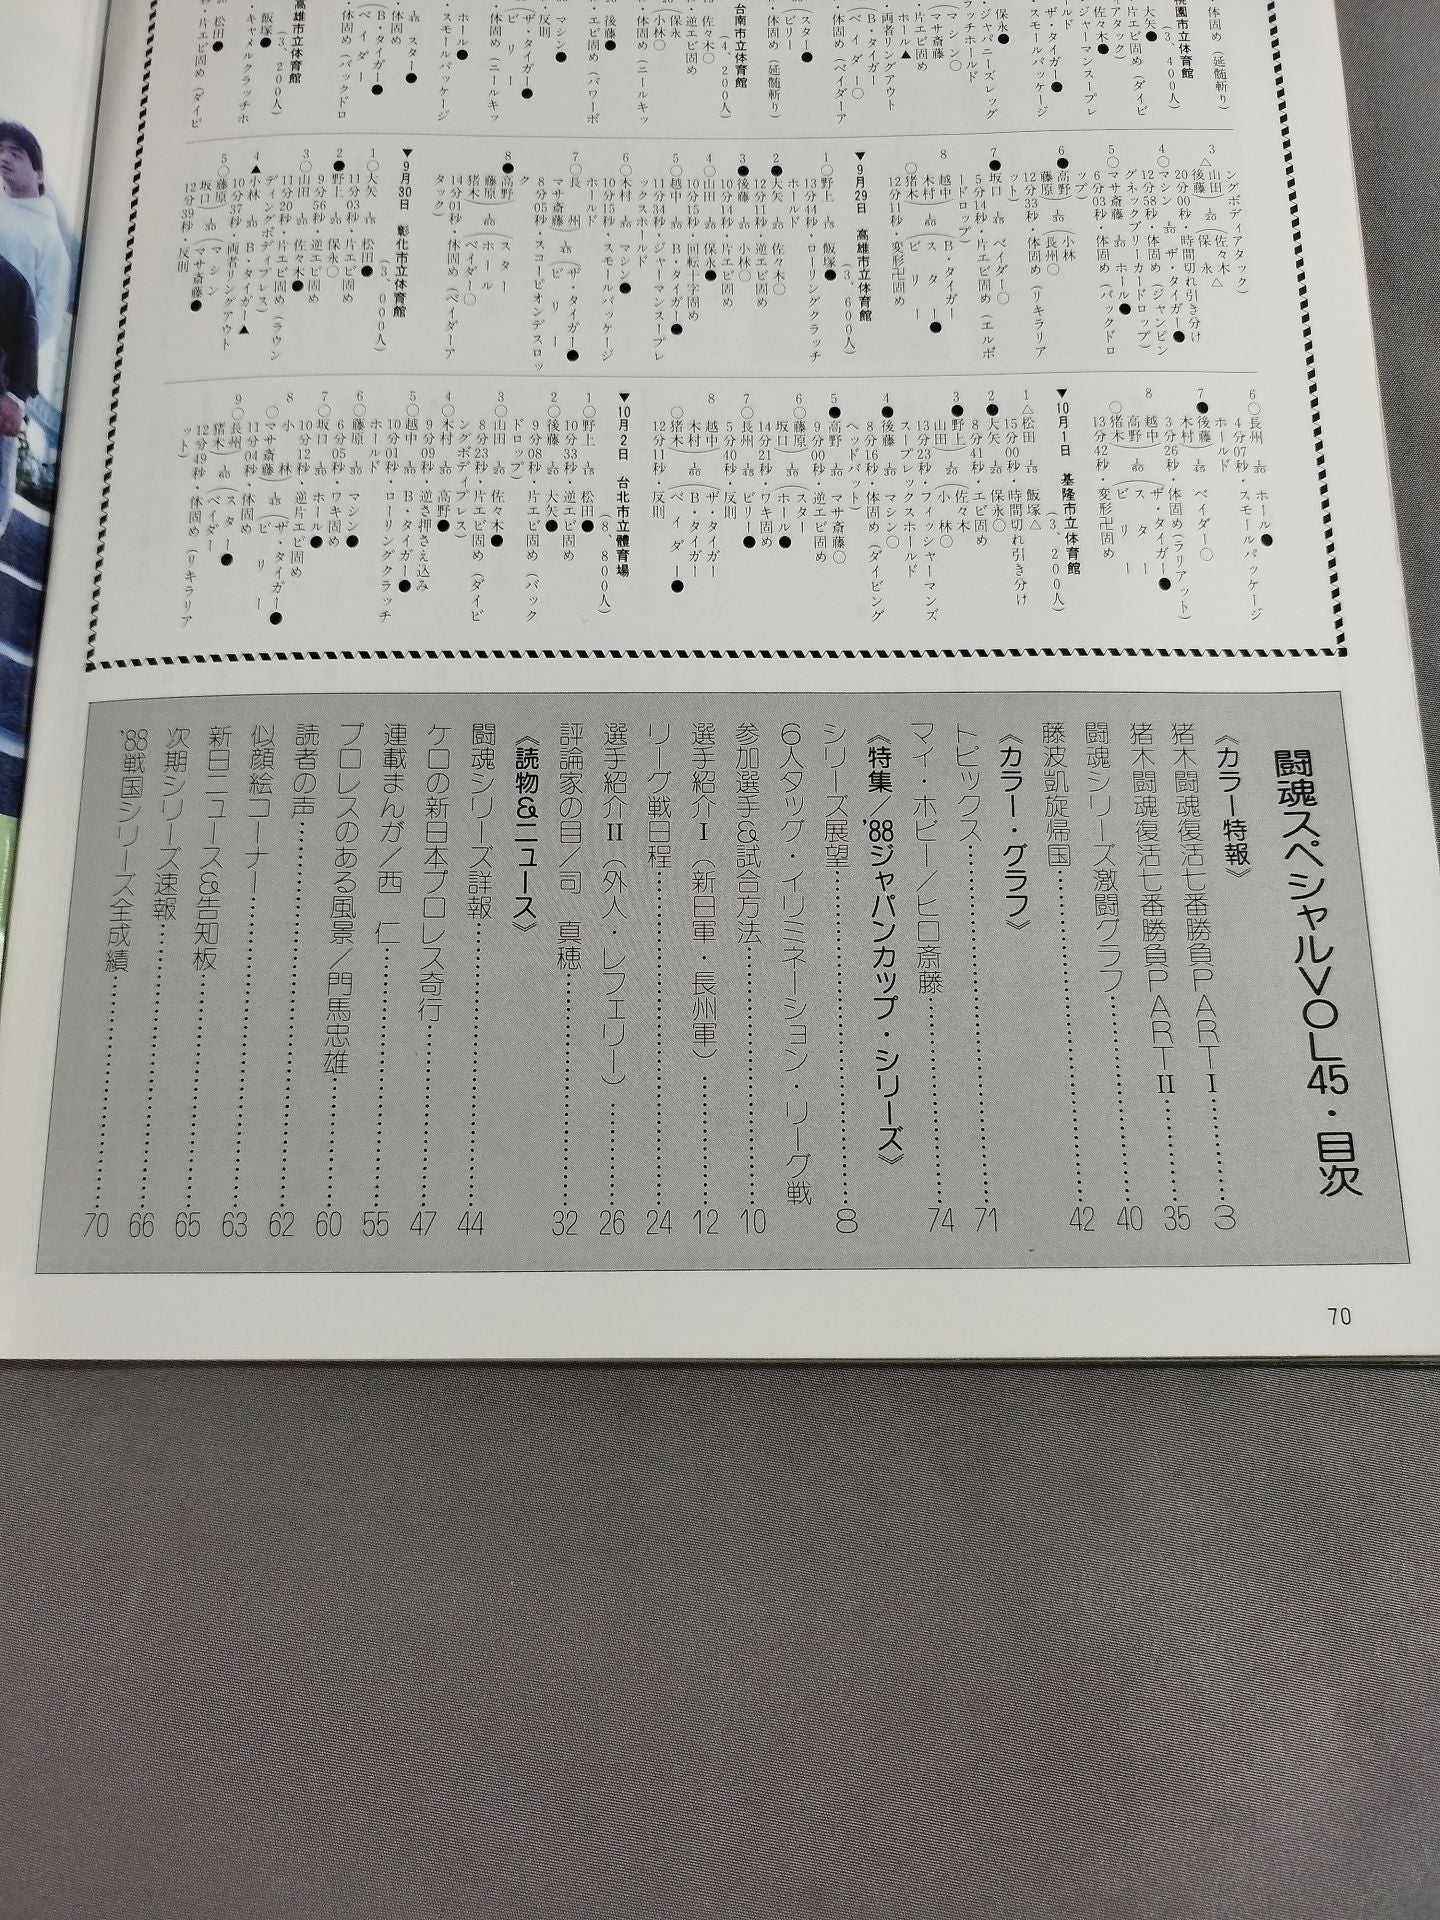 体固め（延髄斬り）
桃園市立体育館
（3、400人）
大矢●
片エビ固め（ダイビ
アタック）
佐々木●
ジャーマンスープレ
ールド
ザ・タイガー●
スモールパッケージ
保永●
ジャパニーズレッグ
ラッチホールド
マシン○
マサ斎藤
片エビ固め
ホール▲
両者リングアウト
B・タイガー
ベイダー○
体固め（ベイダーア
スター●
ビリー
体固め（延髄斬り）
台南市立体育館
（4、200人）
佐々木○
逆エビ固め
保永
小林○
体固め（ニールキッ
後藤●
エビ固め（パワーボ
マシン●
反則
ザ・タイガー●
ビリー
体固め（ニールキッ
ホール●
スモールパッケージ
スター●
体固め
B・タイガー●
ベイダー
体固め（バックドロ
高雄市立体育館
（3、200人）
飯塚●
キャメルクラッチホ
松田●
片エビ固め（ダイビ
ングボディアタック）
3△山田 1/20 佐々木△
後藤 保永
20分00秒・時間切れ引き分け
4○マシン 1/30 ザ・タイガー●
12分58秒・体固め（ジャンピン
グネックブリーカードロップ）
5○マサ斎藤 1/30 ホール●
6分03秒・体固め（バックドロ
ップ）
6●高野 1/30 小林
藤原 長州○
12分33秒・体固め（リキラリア
ット）
7●坂口 1/30 ベイダー○
5分14秒・片エビ固め（エルボ
ードロップ）
8 越中 B・タイガー
木村 1/60 スター●
○猪木 ビリー
12分11秒・変形卍固め
▼9月29日 高雄市立体育館
（3、600人）
1○野上 1/15 飯塚●
13分44秒・ローリングクラッチ
ホールド
2●大矢 1/20 佐々木○
12分11秒・逆エビ固め
3●後藤 1/20 小林○
10分14秒・片エビ固め
4○山田 1/20 保永●
10分15秒・回転十字固め
5○越中 1/30 B・タイガー●
11分34秒・ジャーマンスープレ
ックスホールド
6○木村 1/30 マシン●
10分15秒・スモールパッケージ
ホールド
7○長州 1/45 ザ・タイガー●
マサ斎藤 ビリー
8分05秒・スコーピオンデスロッ
ク
8●高野 スター
藤原 1/60 ホール
猪木 ベイダー○
14分01秒・体固め（ベイダーア
タック）
▼9月30日 彰化市立体育館
（3、000人）
1○大矢 1/15 松田●
11分03秒・片エビ固め
2●野上 1/20 保永○
9分56秒・逆エビ固め
3○山田 1/20 佐々木●
11分20秒・片エビ固め（ラウン
ディングボディプレス）
4▲小林 1/30 B・タイガー▲
10分37秒・両者リングアウト
5○藤原 1/30 マシン
坂口 マサ斎藤●
12分39秒・反則
6○長州 1/30 ホール●
4分07秒・スモールパッケージ
ホールド
7●後藤 1/45 ベイダー○
木村 ザ・タイガー
3分26秒・体固め（ラリアット）
8 越中 ザ・タイガー●
高野 1/60 スター
○猪木 ビリー
13分42秒・変形卍固め
▼10月1日 基隆市立体育館
（3、200人）
1△松田 1/15 飯塚△
15分00秒・時間切れ引き分け
2●大矢 1/20 保永○
8分41秒・エビ固め
3●野上 1/30 佐々木
山田 小林○
13分23秒・フィッシャーマンズ
スープレックスホールド
4●後藤 1/30 マシン○
8分16秒・体固め（ダイビング
ヘッドバット）
5●高野 1/30 マサ斎藤○
9分00秒・逆エビ固め
6○藤原 1/30 スター
坂口 ホール●
14分21秒・ワキ固め
7○長州 1/45 ビリー●
5分40秒・反則
8 越中 B・タイガー
木村 1/60 ザ・タイガー
○猪木 ベイダー●
12分11秒・反則
▼10月2日 台北市立體育場
（8、800人）
1○野上 1/15 松田●
10分33秒・逆エビ固め
2○後藤 1/20 大矢●
9分08秒・片エビ固め（バック
ドロップ）
3○山田 1/20 佐々木●
8分23秒・片エビ固め（ダイビ
ングボディプレス）
4○木村 1/30 高野●
9分09秒・逆さ押さえ込み
5○越中 1/30 B・タイガー●
10分01秒・ローリングクラッチ
ホールド
6○藤原 1/30 マシン●
6分05秒・ワキ固め
7○坂口 1/30 ホール●
10分12秒・逆片エビ固め
8 小林 1/45 ザ・タイガー●
○マサ斎藤 ビリー
11分04秒・体固め
9○長州 1/60 スター●
猪木 ベイダー
12分49秒・体固め（リキラリア
ット）
闘魂スペシャルVOL45・目次
《カラー特報》
猪木闘魂復活七番勝負PARTⅠ……3
猪木闘魂復活七番勝負PARTⅡ……35
闘魂シリーズ激闘グラフ……40
藤波凱旋帰国……42
《カラー・グラフ》
トピックス……71
マイ・ホビー／ヒロ斎藤……74
《特集／'88ジャパンカップ・シリーズ》
シリーズ展望……8
6人タッグ・イリミネーション・リーグ戦
参加選手&試合方法……10
選手紹介Ⅰ（新日軍・長州軍）……12
リーグ戦日程……24
選手紹介Ⅱ（外人・レフェリー）……26
評論家の目／司 真穂……32
《読物&ニュース》
闘魂シリーズ詳報……44
ケロの新日本プロレス奇行……47
連載まんが／西 仁……55
プロレスのある風景／門馬忠雄……60
読者の声……62
似顔絵コーナー……63
新日ニュース&告知板……65
次期シリーズ速報……66
'88戦国シリーズ全成績……70
70